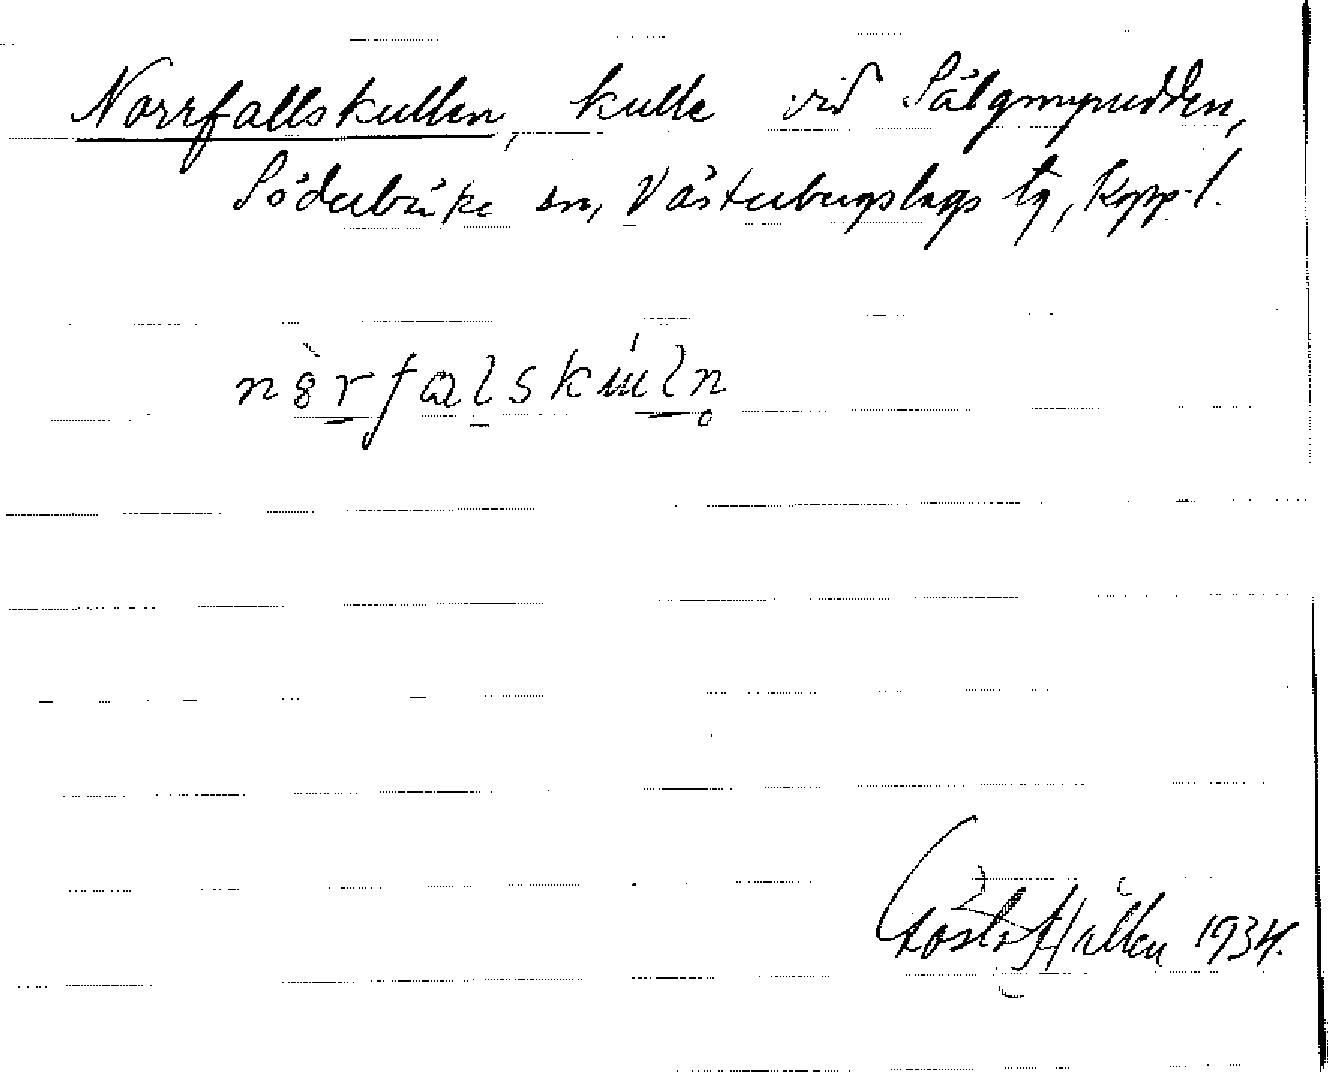 Norrfallskullen, kulle vid Sälgmyrudden,
Söderbärke sn, Västerbergslags tg, Kopp. l.
nòrfalskuln
Gösta Hallén 1934.